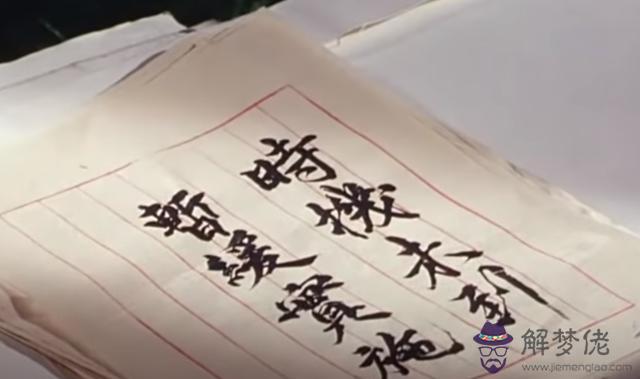 時機未到
暫緩實施
解梦佬
www.jiemenglao.com